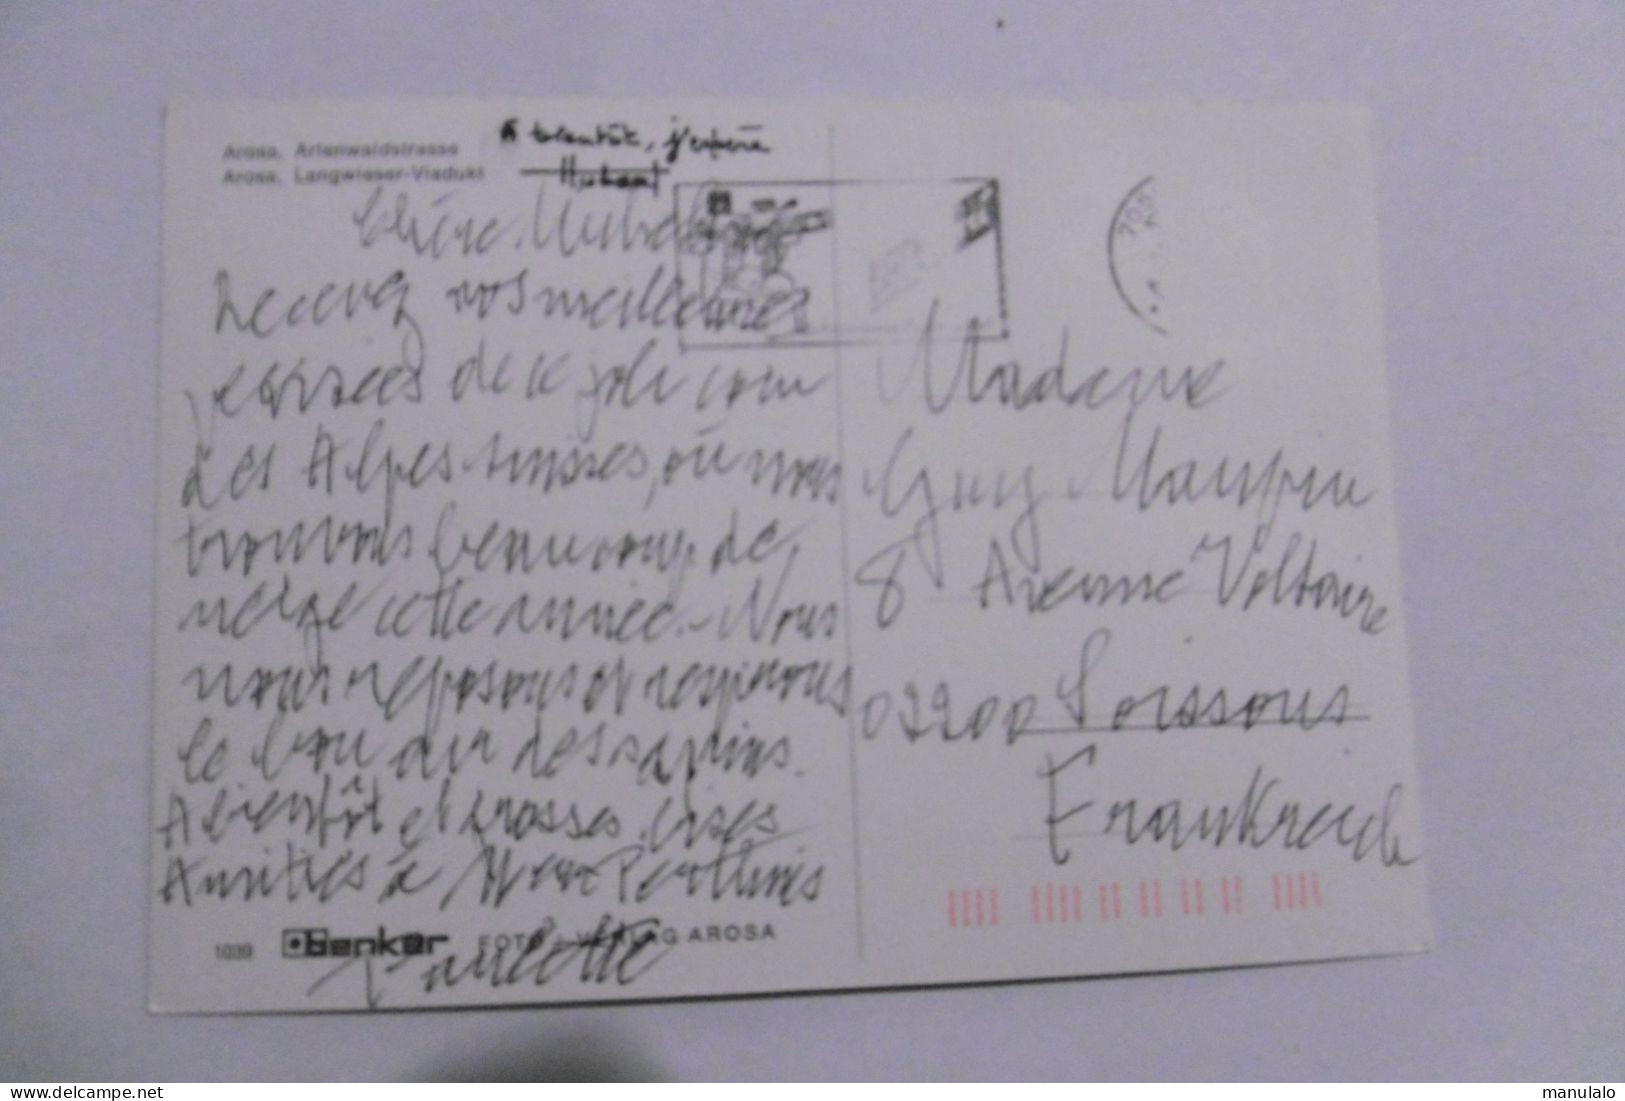 Arosa, Arlenwaldstrasse
Arosa, Langwieser-Viadukt
A bientôt, j'espère
Hubert
Chère
Recevez nos meilleures
pensées de ce joli coin
des Alpes suisses, où nous
trouvons beaucoup de
neige cette année. - Nous
nous reposons et respirons
le bon air des sapins.
A bientôt et grosses bises
Amitiés à
Paulette
1039 Benker FOTO - VERLAG AROSA
Madame
Guy Maupin
8 Avenue Voltaire
02200 Soissons
Frankreich
manulalo